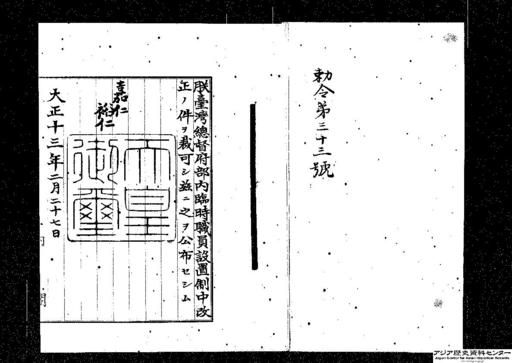 勅令第三十三號
朕臺灣總督府部內臨時職員設置制中改
正ノ件ヲ裁可シ茲ニ之ヲ公布セシム
嘉仁
裕仁
天皇
御璽
大正十三年二月二十七日
アジア歴史資料センター
Japan Center for Asian Historical Records